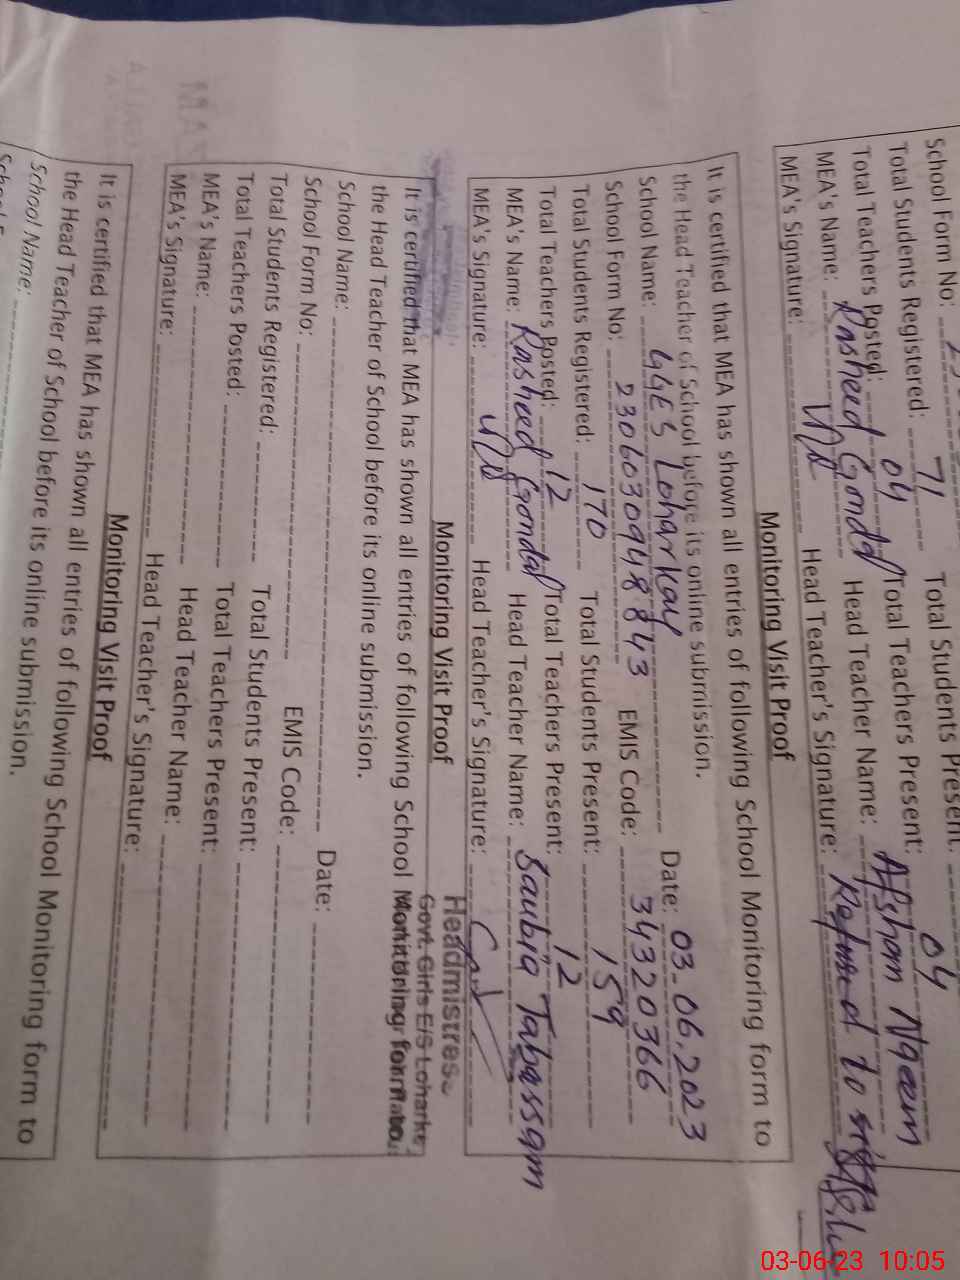 School Form No:
Total Students Registered: 71 Total Students Present: 04
Total Teachers Posted: 04 Total Teachers Present:
MEA's Name: Rasheed Gondal Head Teacher Name: Afsham Naeem
MEA's Signature: Head Teacher's Signature: Refused to sign
Monitoring Visit Proof
It is certified that MEA has shown all entries of following School Monitoring form to
the Head Teacher of School before its online submission.
School Name: GGES Loharkay Date: 03.06.2023
School Form No: 23060309488843 EMIS Code: 34320366
Total Students Registered: 170 Total Students Present: 159
Total Teachers Posted: 12 Total Teachers Present: 12
MEA's Name: Rasheed Gondal Head Teacher Name: Saubia Tabassam
MEA's Signature: Head Teacher's Signature:
Headmistress
Govt. Girls E/S Loharke
Monitoring Visit Proof
It is certified that MEA has shown all entries of following School Monitoring form to
the Head Teacher of School before its online submission.
School Name: Date:
School Form No: EMIS Code:
Total Students Registered: Total Students Present:
Total Teachers Posted: Total Teachers Present:
MEA's Name: Head Teacher Name:
MEA's Signature: Head Teacher's Signature:
Monitoring Visit Proof
It is certified that MEA has shown all entries of following School Monitoring form to
the Head Teacher of School before its online submission.
School Name:
03-06-23 10:05